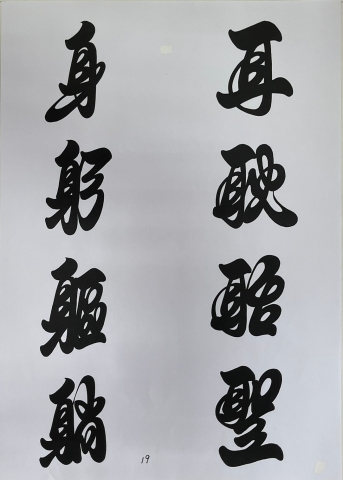 耳耽聖
身躬軀躺
19